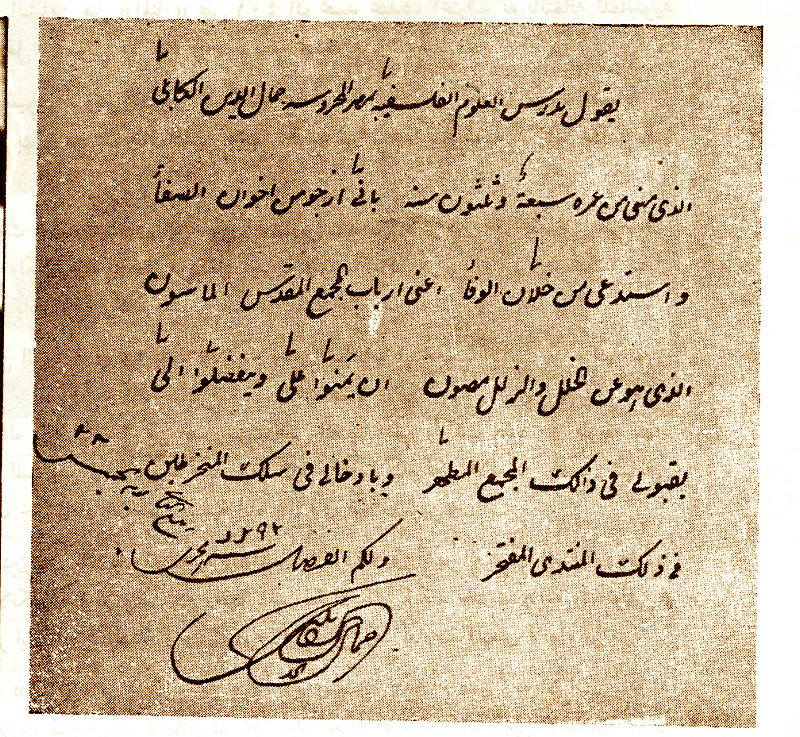 يقول مدرس العلوم الفلسفية بمصر المحروسة جمال الدين الكابلي
الذي مضى من عمره سبعة وثلثون سنة بأني أرجو من اخوان الصفا
واستدعى من خلان الوفا اعنى ارباب المجمع المقدس الماسون
الذي هو عن الخلل والزلل مصون ان يمنوا على ويتفضلوا الى
بقبولى فى ذلك المجمع المطهر وبادخالى فى سلك المنخرطين
فى ذلك المنتدى المفتخر ولكم الفضل
سنة ١٢٩٢
جمال الدين